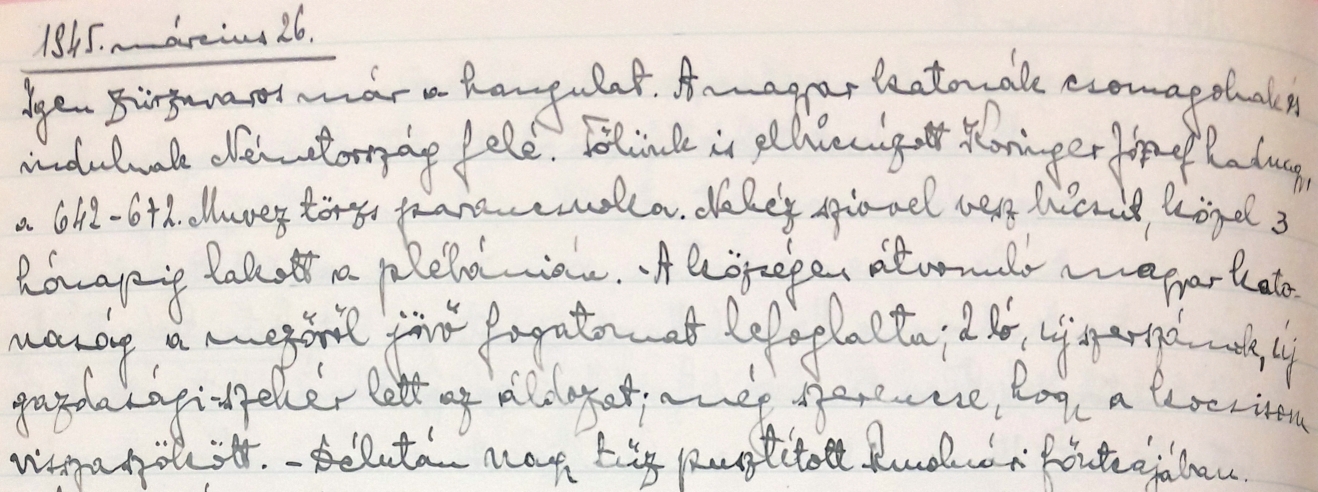 1945. március 26.
Igen zürzavaros már a hangulat. A magyar katonák csomagolnak és
indulnak Németország felé. Tőlünk is elbúcsúzott Koringer József hadnagy,
a 642-672. Muvez törzs parancsnoka. Nehéz szivvel vesz búcsút, közel 3
hónapig lakott a plébánián. - A községen átvonuló magyar kato-
naság a mezőről jövő fogatomat lefoglalta; 2 ló, új szerszámok, új
gazdasági-szekér lett az áldozat; még szerencse, hogy a kocsisom
visszaszökött. - Délután nagy tűz pusztított főutcájában.